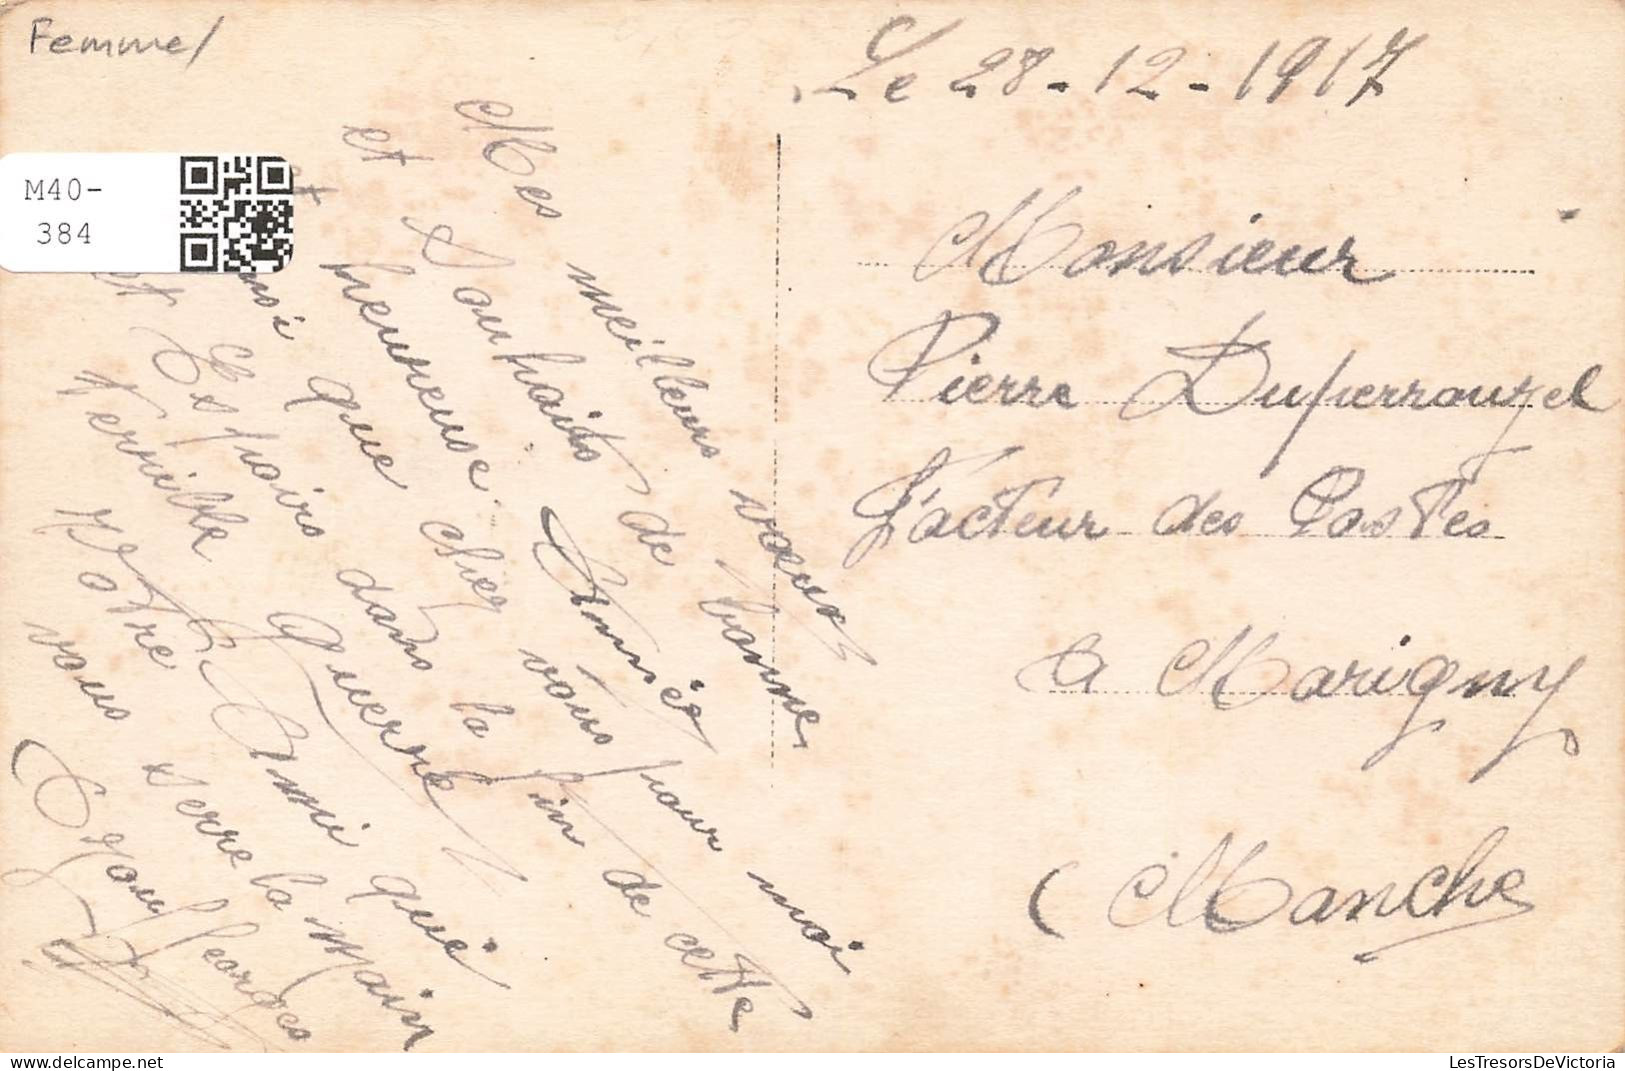 Femme/
Le 28-12-1917
M40-
384
Mes meilleurs voeux
et Souhaits de bonne
et heureuse Année
que chez vous pour moi
et Espoirs dans la fin de cette
Terrible Guerre
Votre Ami qui
vous serre la Main
Georges
Monsieur
Pierre Duperrouzel
Facteur des Postes
a Marigny
(Manche
LesTresorsDeVictoria